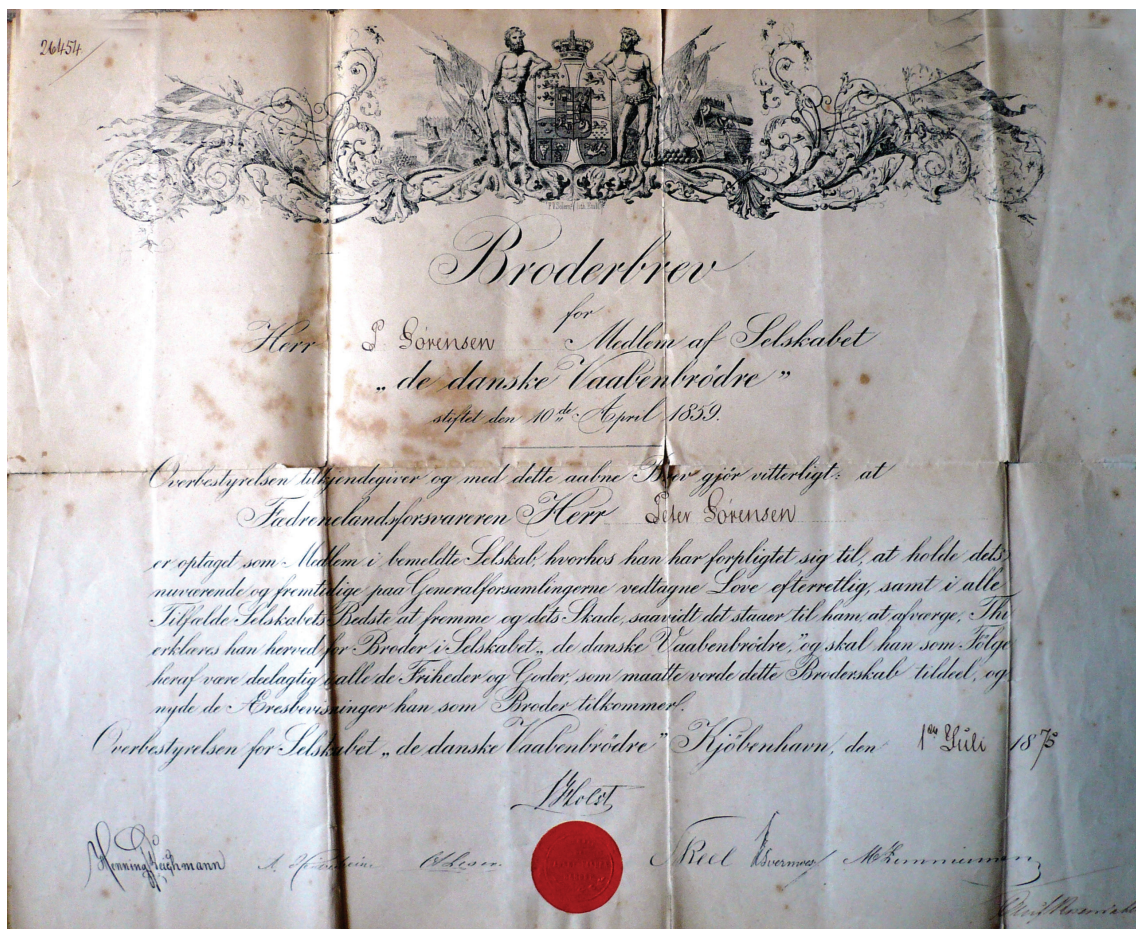 26454
Broderbrev
for
Herr P. Sörensen Medlem af Selskabet
„de danske Vaabenbrödre”
stiftet den 10de April 1859.
Overbestyrelsen tilkjendegiver og med dette aabne Brev gjör vitterligt: at
Fædrenelandsforsvareren Herr Peter Sörensen
er optaget som Medlem i bemeldte Selskab, hvorhos han har forpligtet sig til, at holde dets
nuværende og fremtidige paa Generalforsamlingerne vedtagne Love efterretlig, samt i alle
Tilfælde Selskabets Bedste at fremme og dets Skade, saavidt det staaer til ham, at afværge. Thi
erklæres han herved for Broder i Selskabet „de danske Vaabenbrödre”, og skal han som Fölge
heraf være deelagtig i alle de Friheder og Goder, som maatte vorde dette Broderskab tildeel, og
nyde de Æresbeviisninger han som Broder tilkommer.
Overbestyrelsen for Selskabet „de danske Vaabenbrödre” Kjöbenhavn, den 1ste Juli 1875
Holst
Henning